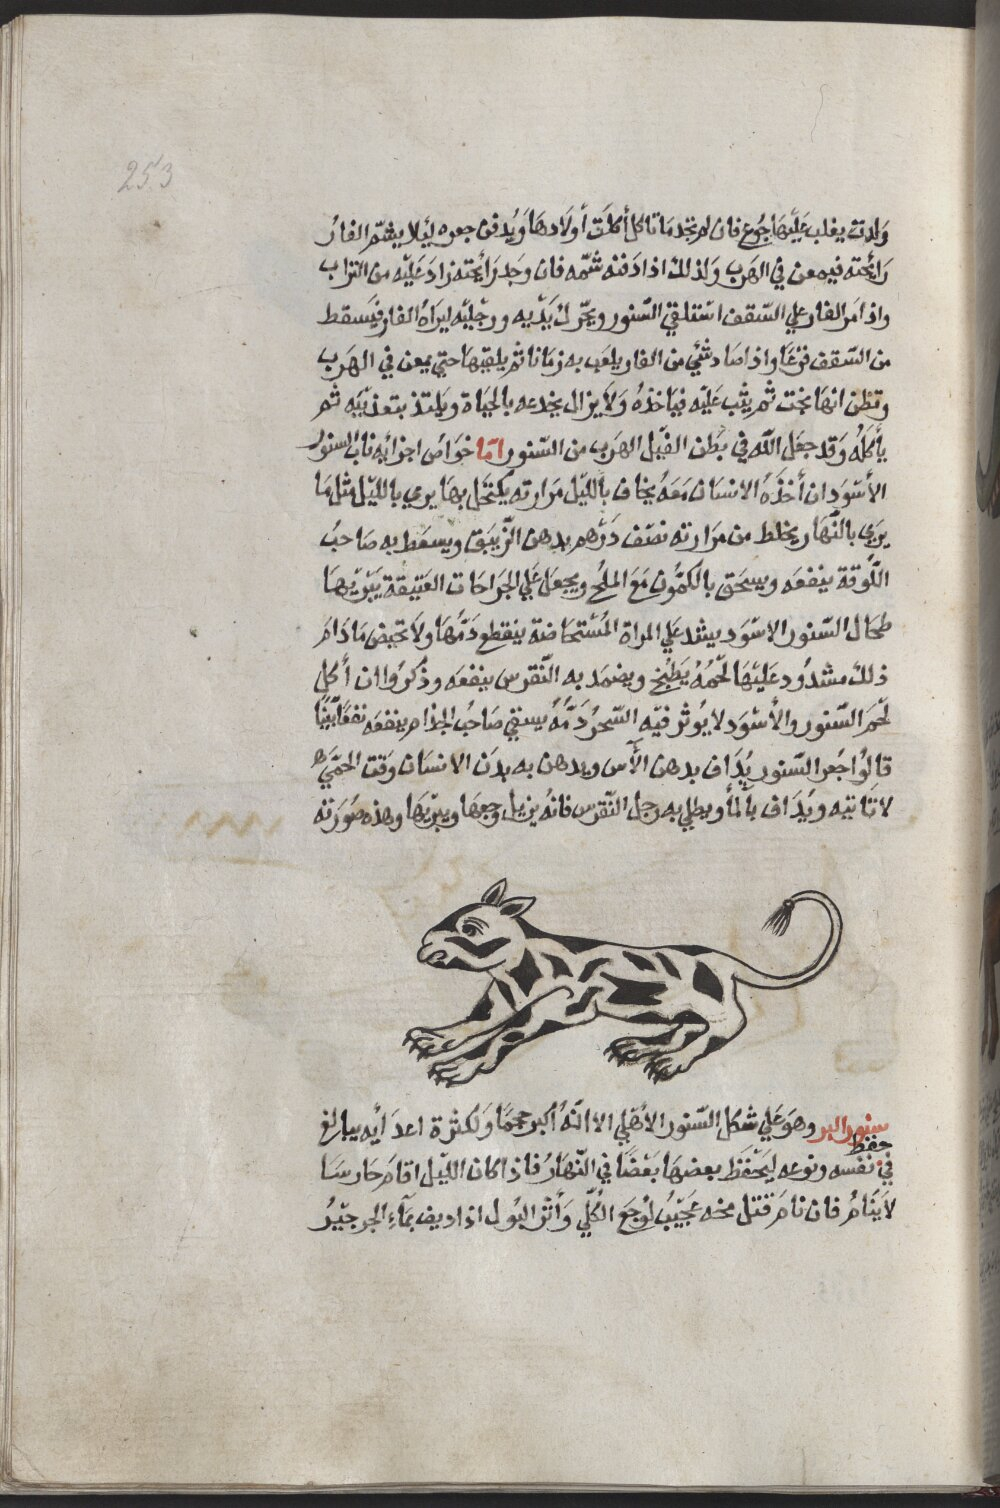 253
ولدت يغلب عليها الجوع فان لم تجد ما تاكل أكلت أولادها ويدفن جعره ليلا يشم الفار
رايحته فيمعن في الهرب ولذلك اذا دفنه شمه فان وجد رايحته زاد عليه من التراب
واذا مر الفار علي السقف استلقي السنور ويحرك يديه ورجليه ليراه الفار فيسقط
من السقف فزعا واذا صاد شئ من الفار يلعب به زمانا ثم يلقيها حتي يمعن في الهرب
وتظن انها نجت ثم يثب عليه فياخذه ولا يزال يخدعه بالحياة ويلتذ بتعذيبه ثم
يأكله وقد جعل الله في بطن الفيل الهرب من السنور اما خواص اجزايه ناب السنور
الأسود ان أخذه الانسان معه يخاف بالليل مرارته يكتحل بها يري بالليل مثل ما
يري بالنهار يخلط من مرارته نصف درهم بدهن الزيبق ويسعط به صاحب
اللوقة ينفعه ويسحق بالكمون مع الملح ويجعل علي الجراحات العتيقة يبريها
طحال السنور الاسود يشد علي المراة المستحاضة ينقطع دمها ولا تحيض مادام
ذلك مشدود عليها لحمه يطبخ ويضمد به النقرس ينفعه وذكروا ان أكل
لحم السنور والأسود لا يوثر فيه السحر دمه يسقي صاحب الجذام ينفعه نفعا بينا
قالوا جعر السنور يداف بدهن الآس ويدهن به بدن الانسان وقت الحمي
لا تاتيه ويداف بالمأ ويطلي به رجل النقرس فانه يزيل وجعها ويبريها وهذه صورته
سنور البر وهو علي شكل السنور الأهلي الا انه أكبر حجما ولكثرة اعدايه يبالغ
حفظ
في نفسه ونوعه ليحفظ بعضها بعضا في النهار فاذا كان الليل اقام حارسا
لا ينام فان نام قتل مخه عجيب لوجع الكلي وأثر البول اذا ديف بمآء الجرجير